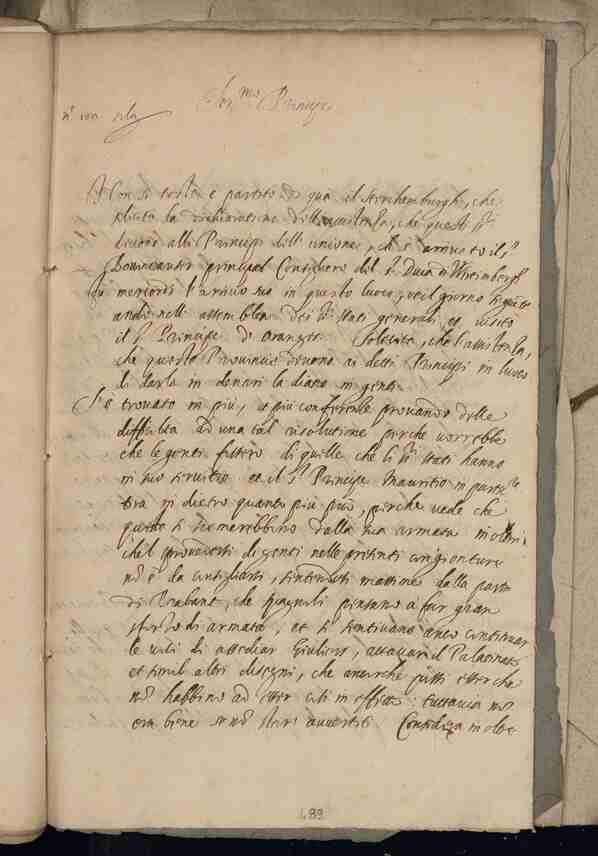 Ser.mo Principe
n.o 100 sola
Non si tosto è partito di qua il Starchemburgh, che
sollecitò la dichiaratione dell'assistenza, che questi s.ri
devono alli Principi dell'unione, ch'è arrivato il s.r
Bouinchausen principal Consigliero del s.r Duca di Wirembergh
fu mercordì l'arrivo suo in questo loco, et il giorno seguente
andò nell'assemblea dei s.ri Stati generali, et visitò
il s.r Principe di Oranges. Sollecita, che l'assistenza,
che queste Provincie devono ai detti Principi in luoco
di darla in denari la diano in gente.
Si è trovato in più, et più conferenze provando delle
difficoltà ad una tal risolutione perche vorrebbe
che le genti fussero di quelle che li s.ri Stati hanno
in suo servitio et il s.r Principe Mauritio in particolare
tira in dietro quanto più può, perche vede che
queste si scemarebbero dalla sua armata, inoltre
che'l provedersi di genti nelle presenti congionture
non è da consigliarsi, sentendosi massime dalla parte
di Brabant, che Spagnoli pensano a far gran
sforzo di armata, et si sentivano anco continuar
le voci di assediar Giuliers, attaccar il Palatinato
et simil altri disegni, che ancorche possi esser che
non habbino ad esser così in effetto: tuttavia non
era bene se non star avvertiti. Considera inoltre
489